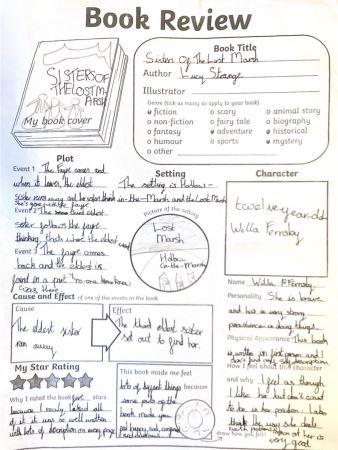 Book Review
SISTERS OF
THE LOST M
ARSH
My book cover
Book Title
Sister Of The Lost Marsh
Author Lucy Strange
Illustrator
Genre (tick as many as apply to your book)
fiction
scary
animal story
non-fiction
fairy tale
biography
fantasy
adventure
historical
humour
sports
mystery
other
Plot
Event 1 The Fayre comes and
when it leaves the eldest
sister runs away and
She's gone with the Fayre
Event 2 The third eldest
sister follows the Fayre
thinking thats what the eldest
Event 3 The Fayre comes
back and the eldest is
found in a
Setting
The setting is Hollow-
in-the-Marsh and the Lost Marsh
Picture of the setting
Lost
Marsh
Hollow
in-the-Marsh
Character
twelve year old
Willa Fernsby
Name Willa Fernsby
Personality She is brave
and has a very strong
persistence in doing things.
Physical Appearance This book
is written in first person and I
How I feel about this character
and why I feel as though
I like her but don't want
to be in her position. I also
think the way she deals
with
very good.
Cause and Effect of one of the events in the book
Cause
The eldest sister
ran away
Effect
The third eldest sister
set out to find her.
My Star Rating
Why I rated the book stars
because I really liked all
of it it was so well written
with lots of description on every page.
This book made me feel
lots of different things because
some parts of the
book made you
feel happy, sad,
draw how you felt!